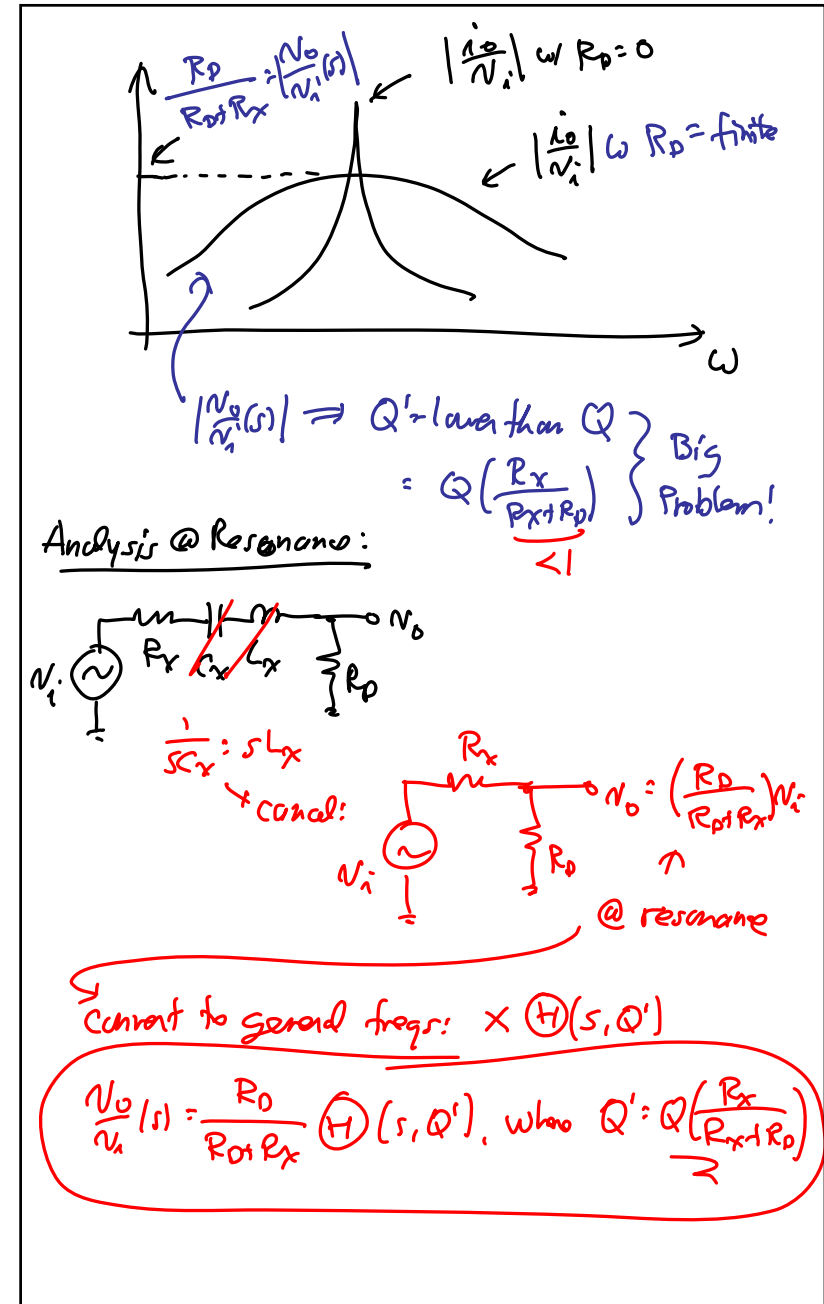 R_D / (R_D+R_x) = |N_o/N_i (s)|
|i_o/N_i| w/ R_D = 0
|i_o/N_i| w R_D = finite
ω
|N_o/N_i (s)| ⇒ Q' = lower than Q
= Q (R_x / (R_x+R_D)) } Big Problem!
<1
Analysis @ Resonance:
N_i R_x C_x L_x R_D N_o
1/(sC_x) = sL_x
→ cancel:
N_i R_x R_D N_o = (R_D / (R_D+R_x)) N_i
↑
@ resonance
Convert to general freqs: × Ⓗ(s, Q')
N_o/N_i (s) = R_D / (R_D+R_x) Ⓗ (s, Q'), where Q' = Q (R_x / (R_x+R_D))